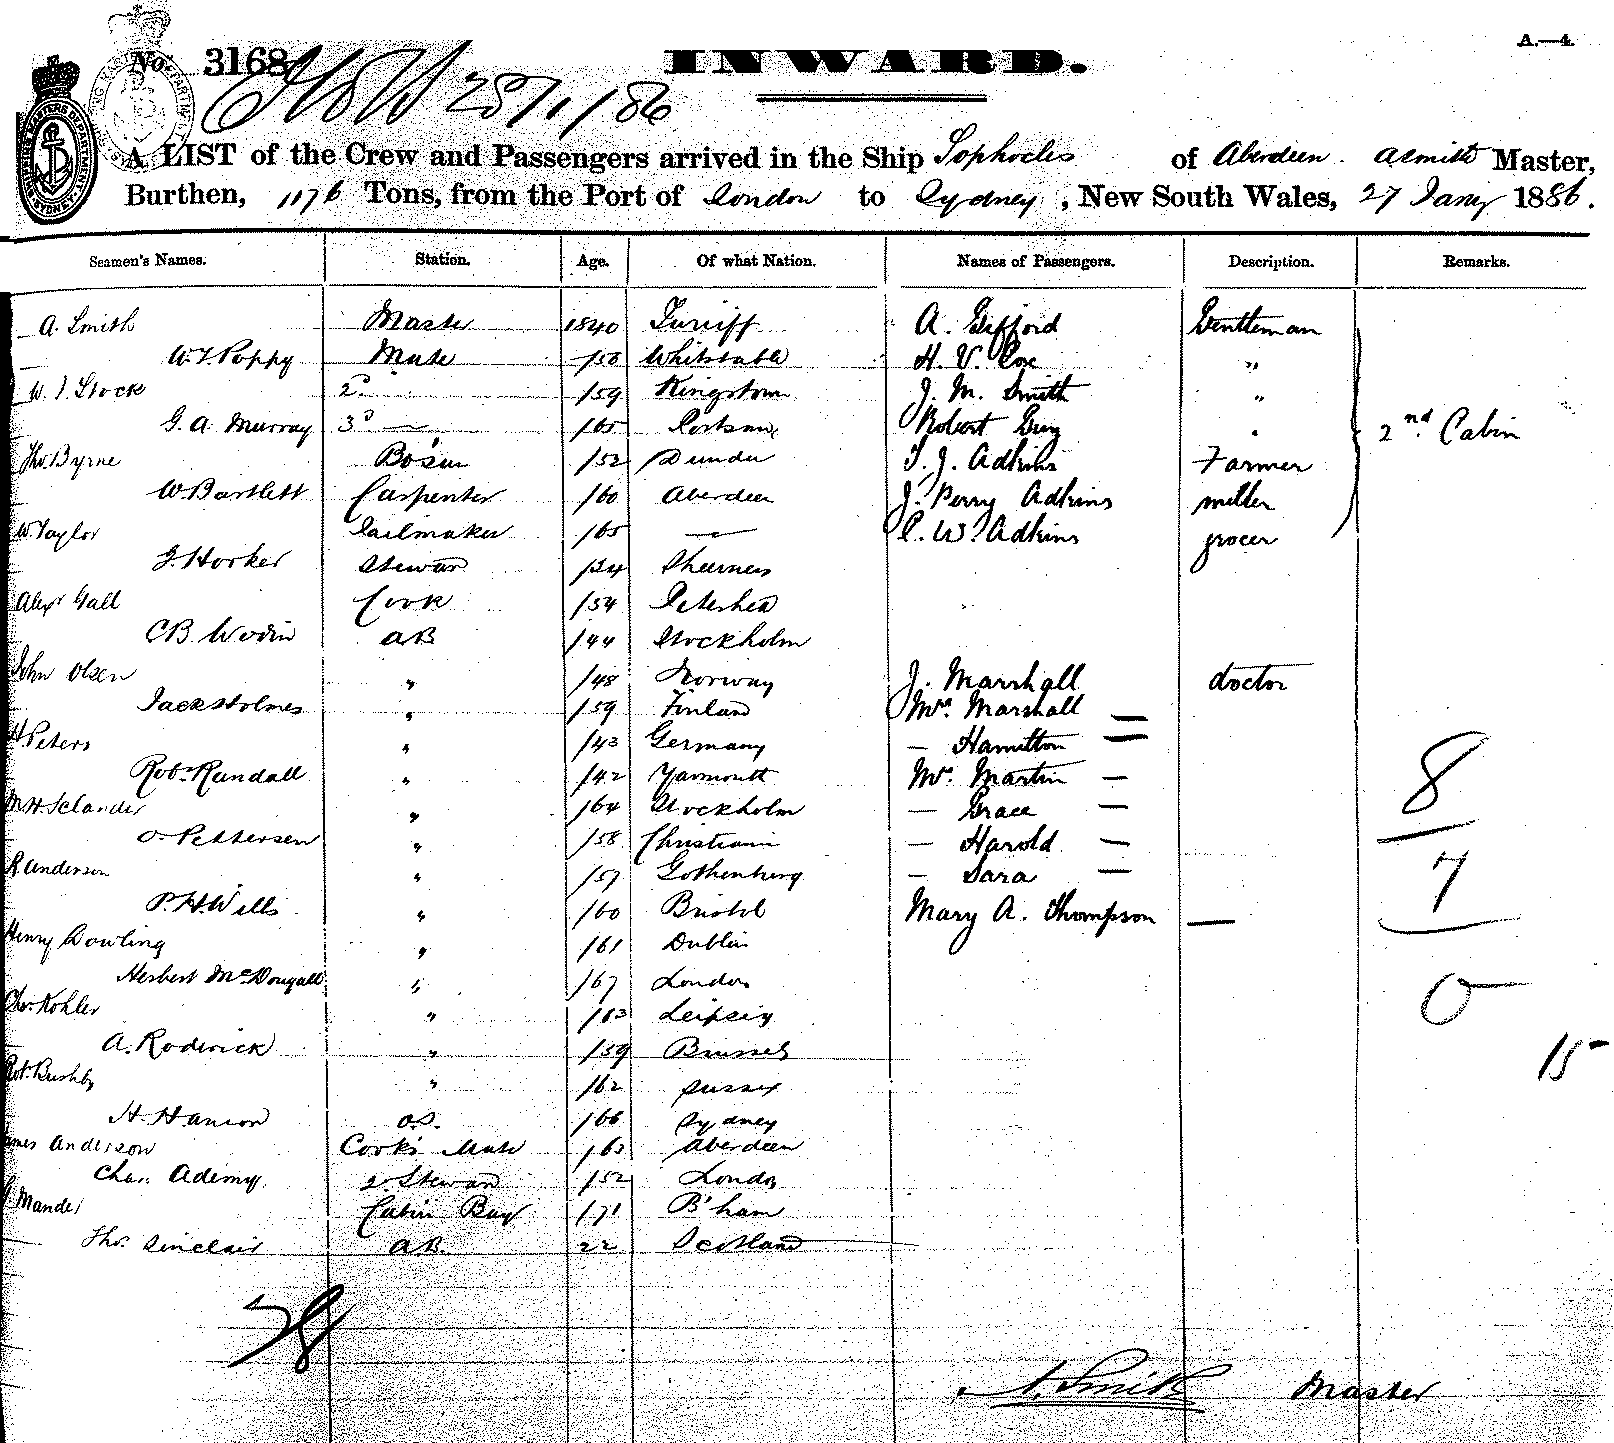 No. 3168
INWARD.
A.—4.
28/1/86
A LIST of the Crew and Passengers arrived in the Ship Sophocles of Aberdeen. A Smith Master,
Burthen, 1176 Tons, from the Port of London to Sydney, New South Wales, 27 Jany 1886.
Seamen's Names. Station. Age. Of what Nation. Names of Passengers. Description. Remarks.
A. Smith Master 1840 Turriff A. Gifford Gentleman
W. T. Poppy Mate /58 Whitstable H. V. Coe "
W. J. Stock 2d /59 Kingstown J. M. Smith "
G. A. Murray 3d — /65 Robert "
2nd Cabin
Thos. Byrne Bosun /52 Dundee T. J. Adkins Farmer
W. Bartlett Carpenter /60 Aberdeen J. Perry Adkins miller
W. Taylor Sailmaker /65 — C. W. Adkins grocer
J. Hooker Steward /34 Sheerness
Alexr Gall Cook /54 Peterhead
C B Wodin AB /44 Stockholm
John Olsen " /48 Norway J. Marshall doctor
Jack Holmes " /59 Finland Mrs. Marshall —
H. Peters " /43 Germany — Hamilton —
Robt. Randall " /42 Yarmouth Mrs. Martin —
8
M. H. Selander " /64 Stockholm — Grace —
O. Pettersen " /58 Christiania — Harold —
R Anderson " /57 Gothenberg — Sara —
7
P. H. Wills " /60 Bristol Mary A. Thompson —
Henry Dowling " /61 Dublin
Herbert McDougall " /67 London
0
Chr. Kohler " /63 Leipzig
A. Roderick " /59 Brussels
15
Robt. Bushby " /62 Sussex
H. Hanson O.S. /66 Sydney
James Anderson Cook's Mate /65 Aberdeen
Chas. Ademy 2d Steward /52 London
Mander Cabin Boy /71 B'ham
Thos. Sinclair AB 22 Scotland
28
A. Smith Master